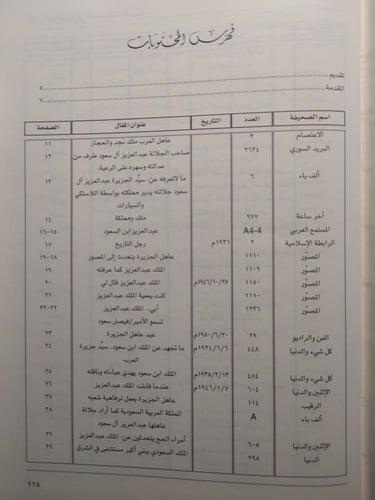 فهرس المحتويات
تقديم ........ ٥
المقدمة ........ ٧
اسم الصحيفة العدد التاريخ عنوان المقال الصفحة
الاعتصام ٣ عاهل العرب ملك نجد والحجاز ١١
البريد السوري ٢٦٣٤ صاحب الجلالة عبدالعزيز آل سعود طرف من ١٢
عدالته وسهره على الرعية.
ألف باء ٦ ما لاتعرفه عن: سيّد الجزيرة عبدالعزيز آل ١٣
سعود جلالته يدير مملكته بواسطة اللاسلكي
والسيارات
آخر ساعة ٩٧٧ ملك ومملكة ١٤
المستمع العربي A4-4 عبدالعزيز ابن السعود ١٥-١٦
الرابطة الإسلامية ٢ ١٩٣١م رجل التاريخ ١٧
المصوّر ١١١٠ عاهل الجزيرة يتحدث إلى المصور ١٨-١٩
المصوّر ١١٠٩ الملك عبدالعزيز كما عرفته ١٩
المصوّر ١١٥٠ ١٩٤٦/١٠/٢٥م الملك عبدالعزيز قال لي ٢٠
المصوّر ١١١٠ كنت بمعية الملك عبدالعزيز ٢١
المصوّر ١٣٣٦ أبي.. الملك عبدالعزيز ٢٢-٢٣
لسمو الأمير/فيصل سعود
الفن والراديو ٢٩ ١٩٥٠/٦/٢٠م عيد عاهل الجزيرة ٢٣
كل شيء والدنيا ٤٤٨ ١٩٣٤/٦/٦م ما تجهد عن الملك ابن سعود، سيّد جزيرة ٢٤
العرب
كل شيء والدنيا ٤٨٤ ١٩٣٥/٢/١٣م الملك ابن سعود يهدي عباءته وناقته ٢٥
الإثنين والدنيا ٦٠٤ ١٩٤٦/١/٧م عندما قابلت الملك عبدالعزيز ٢٦
الرقيب ١١٤ عاهل الجزيرة يعمل لرفاهية شعبه ٢٧
ألف باء A المملكة العربية السعودية كما أراد جلالة ٢٨
عاهلها عبدالعزيز آل سعود
الإثنين والدنيا ٦٠٥ أمراء الحج يتحدثون عن: الملك عبدالعزيز ٢٩
الدنيا ٢٩٨ الملك السعودي يبني أكبر مستشفى في الشرق ٢٩
١١٥